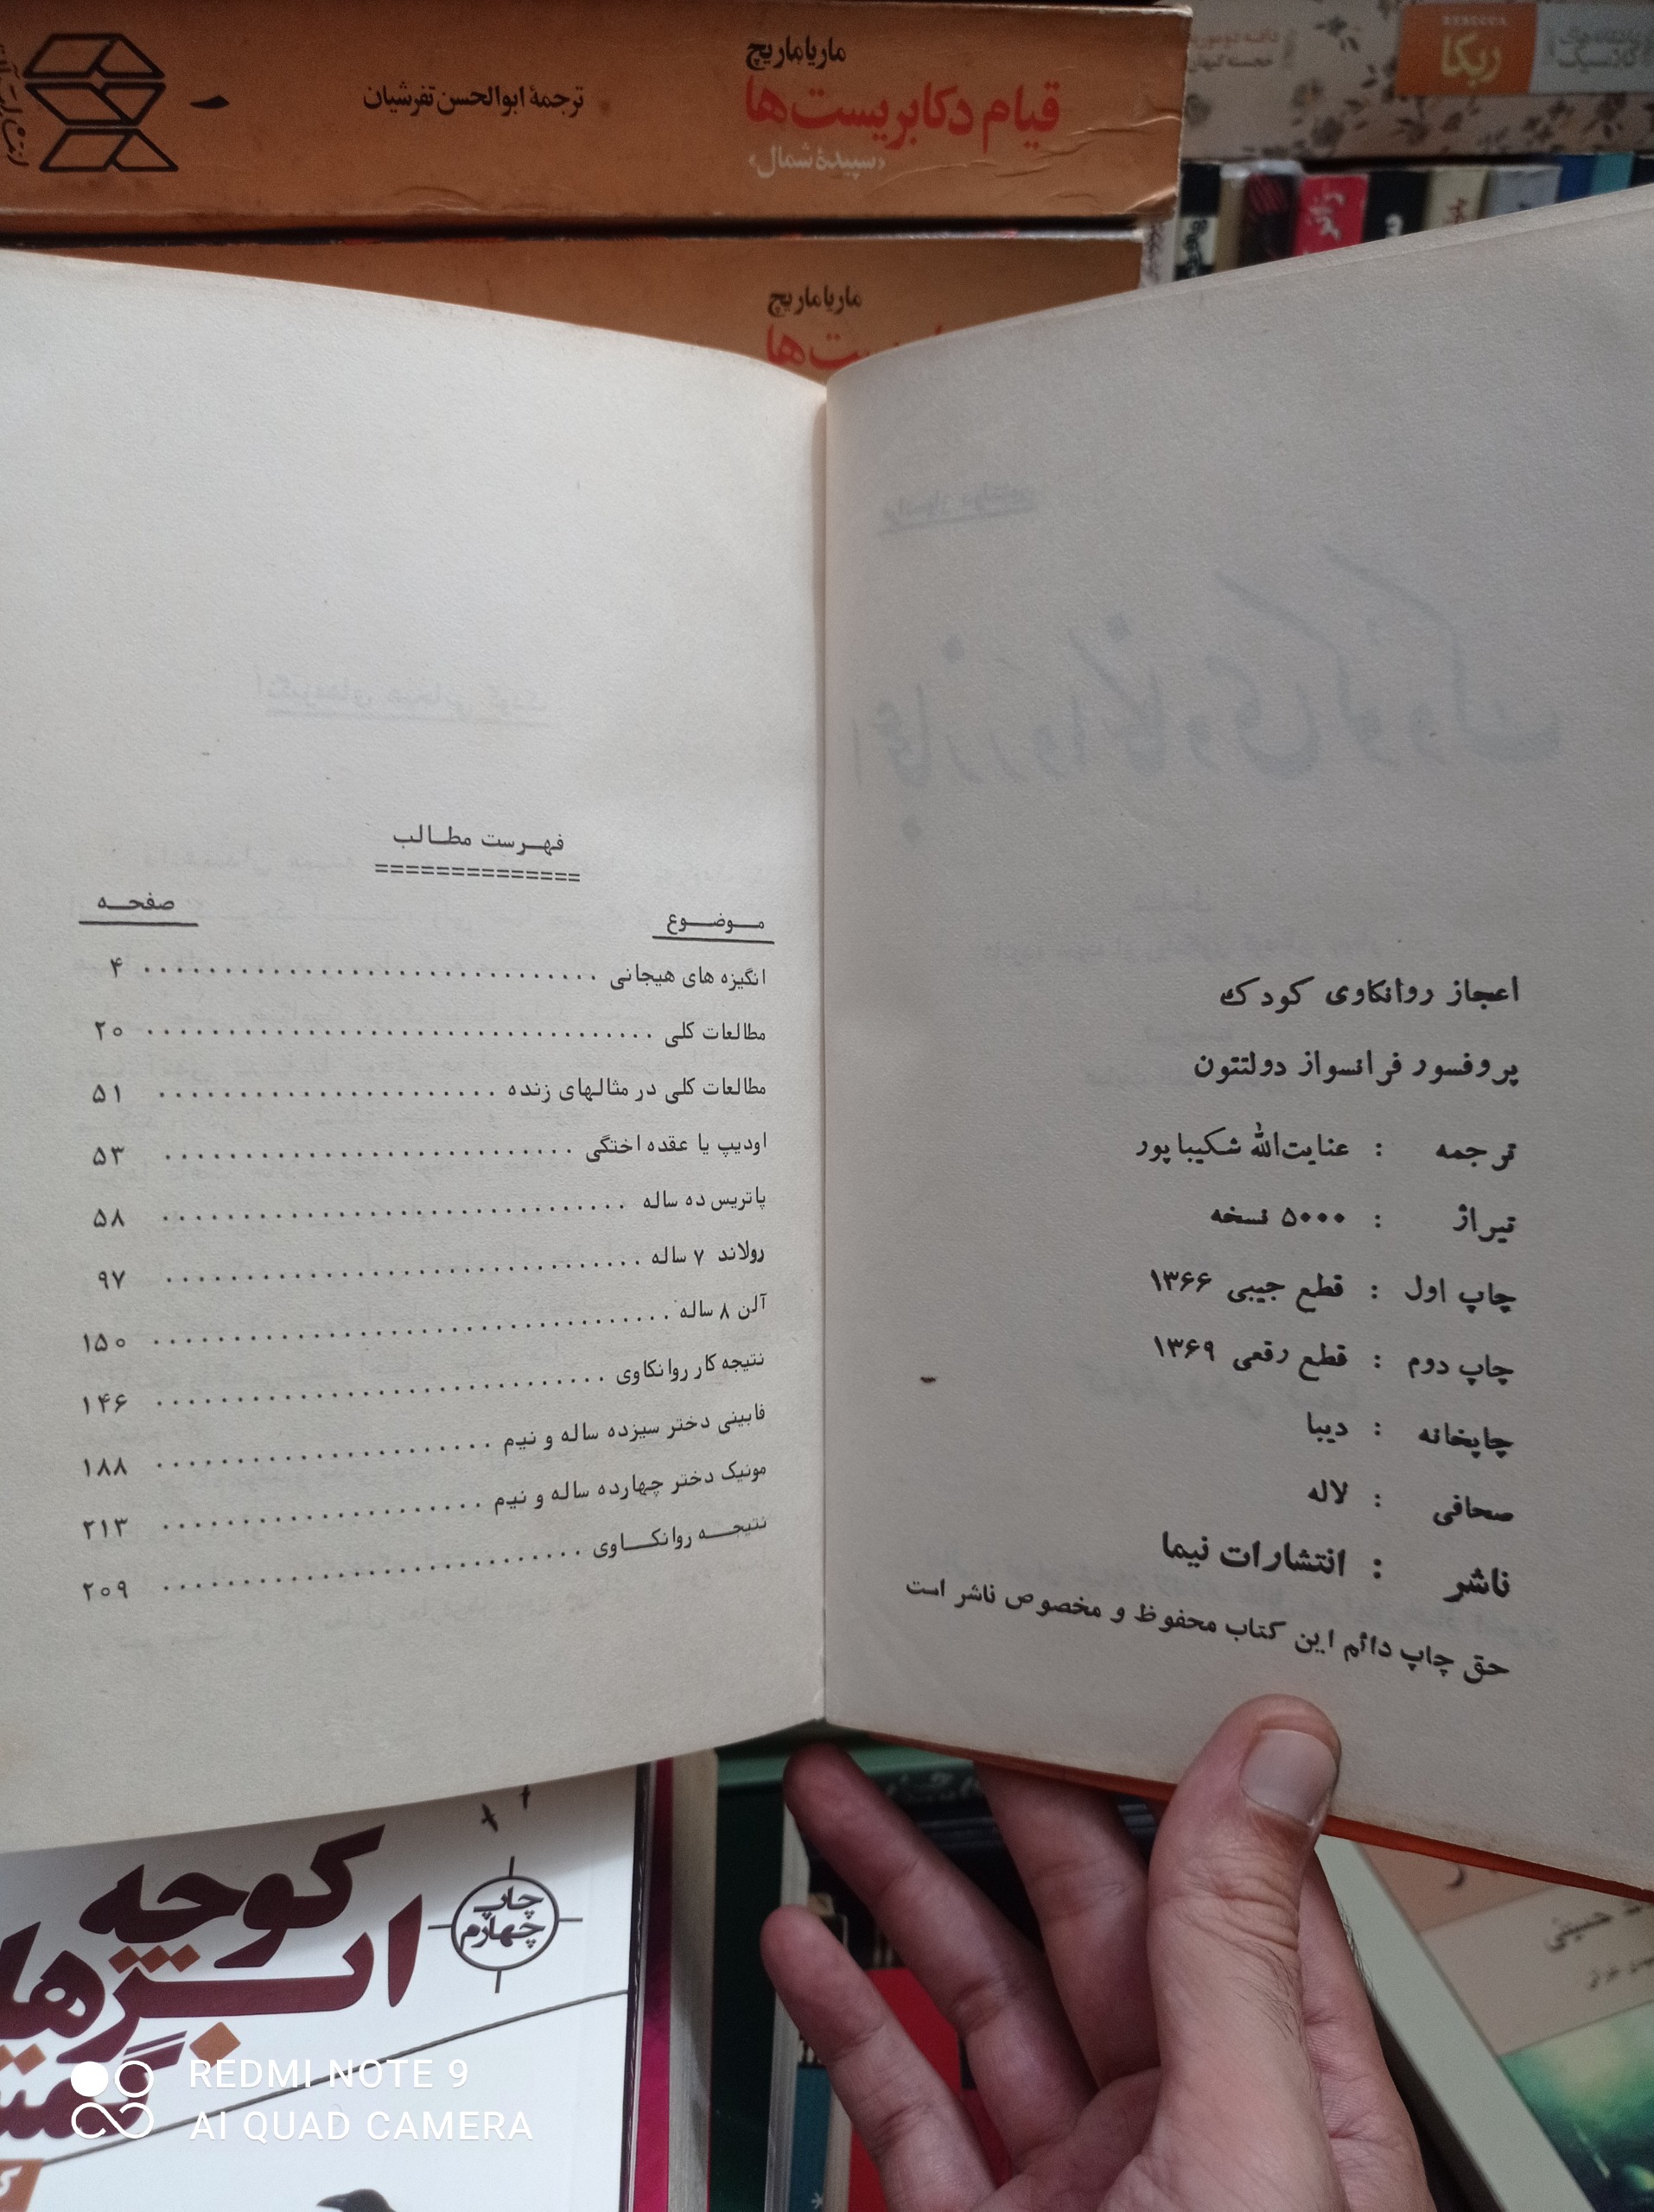 ماریا ماریچ
قیام دکابریست‌ها
«سپیدهٔ شمال»
ترجمهٔ ابوالحسن تفرشیان
ماریا ماریچ
REBECCA
ربکا
اعجاز روانکاوی کودک
پروفسور فرانسواز دولتتون
ترجمه : عنایت‌الله شکیباپور
تیراژ : ۵۰۰۰ نسخه
چاپ اول : قطع جیبی ۱۳۶۶
چاپ دوم : قطع رقعی ۱۳۶۹
چاپخانه : دیبا
صحافی : لاله
ناشر : انتشارات نیما
حق چاپ دائم این کتاب محفوظ و مخصوص ناشر است
فهرست مطالب
==============
موضوع صفحه
انگیزه های هیجانی ۴
مطالعات کلی ۲۰
مطالعات کلی در مثالهای زنده ۵۱
اودیپ یا عقده اختگی ۵۳
پاتریس ده ساله ۵۸
رولاند ۷ ساله ۹۷
آلن ۸ ساله ۱۵۰
نتیجه کار روانکاوی ۱۴۶
فابینی دختر سیزده ساله و نیم ۱۸۸
مونیک دختر چهارده ساله و نیم ۲۱۳
نتیجه روانکاوی ۲۰۹
کوچه
ابرهای
چاپ
چهارم
حسینی
REDMI NOTE 9
AI QUAD CAMERA